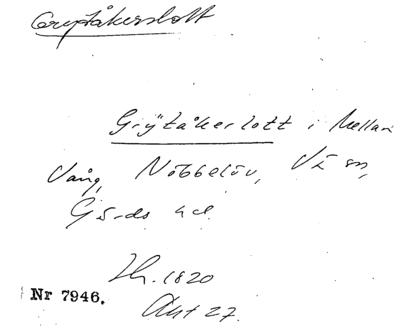 Grytåkerslott
Grÿtåkerlott i Mellan
Vång, Nöbbelöv, Vä sn,
Gärds hd.
Sk. 1820
Nr 7946.
Akt 27.